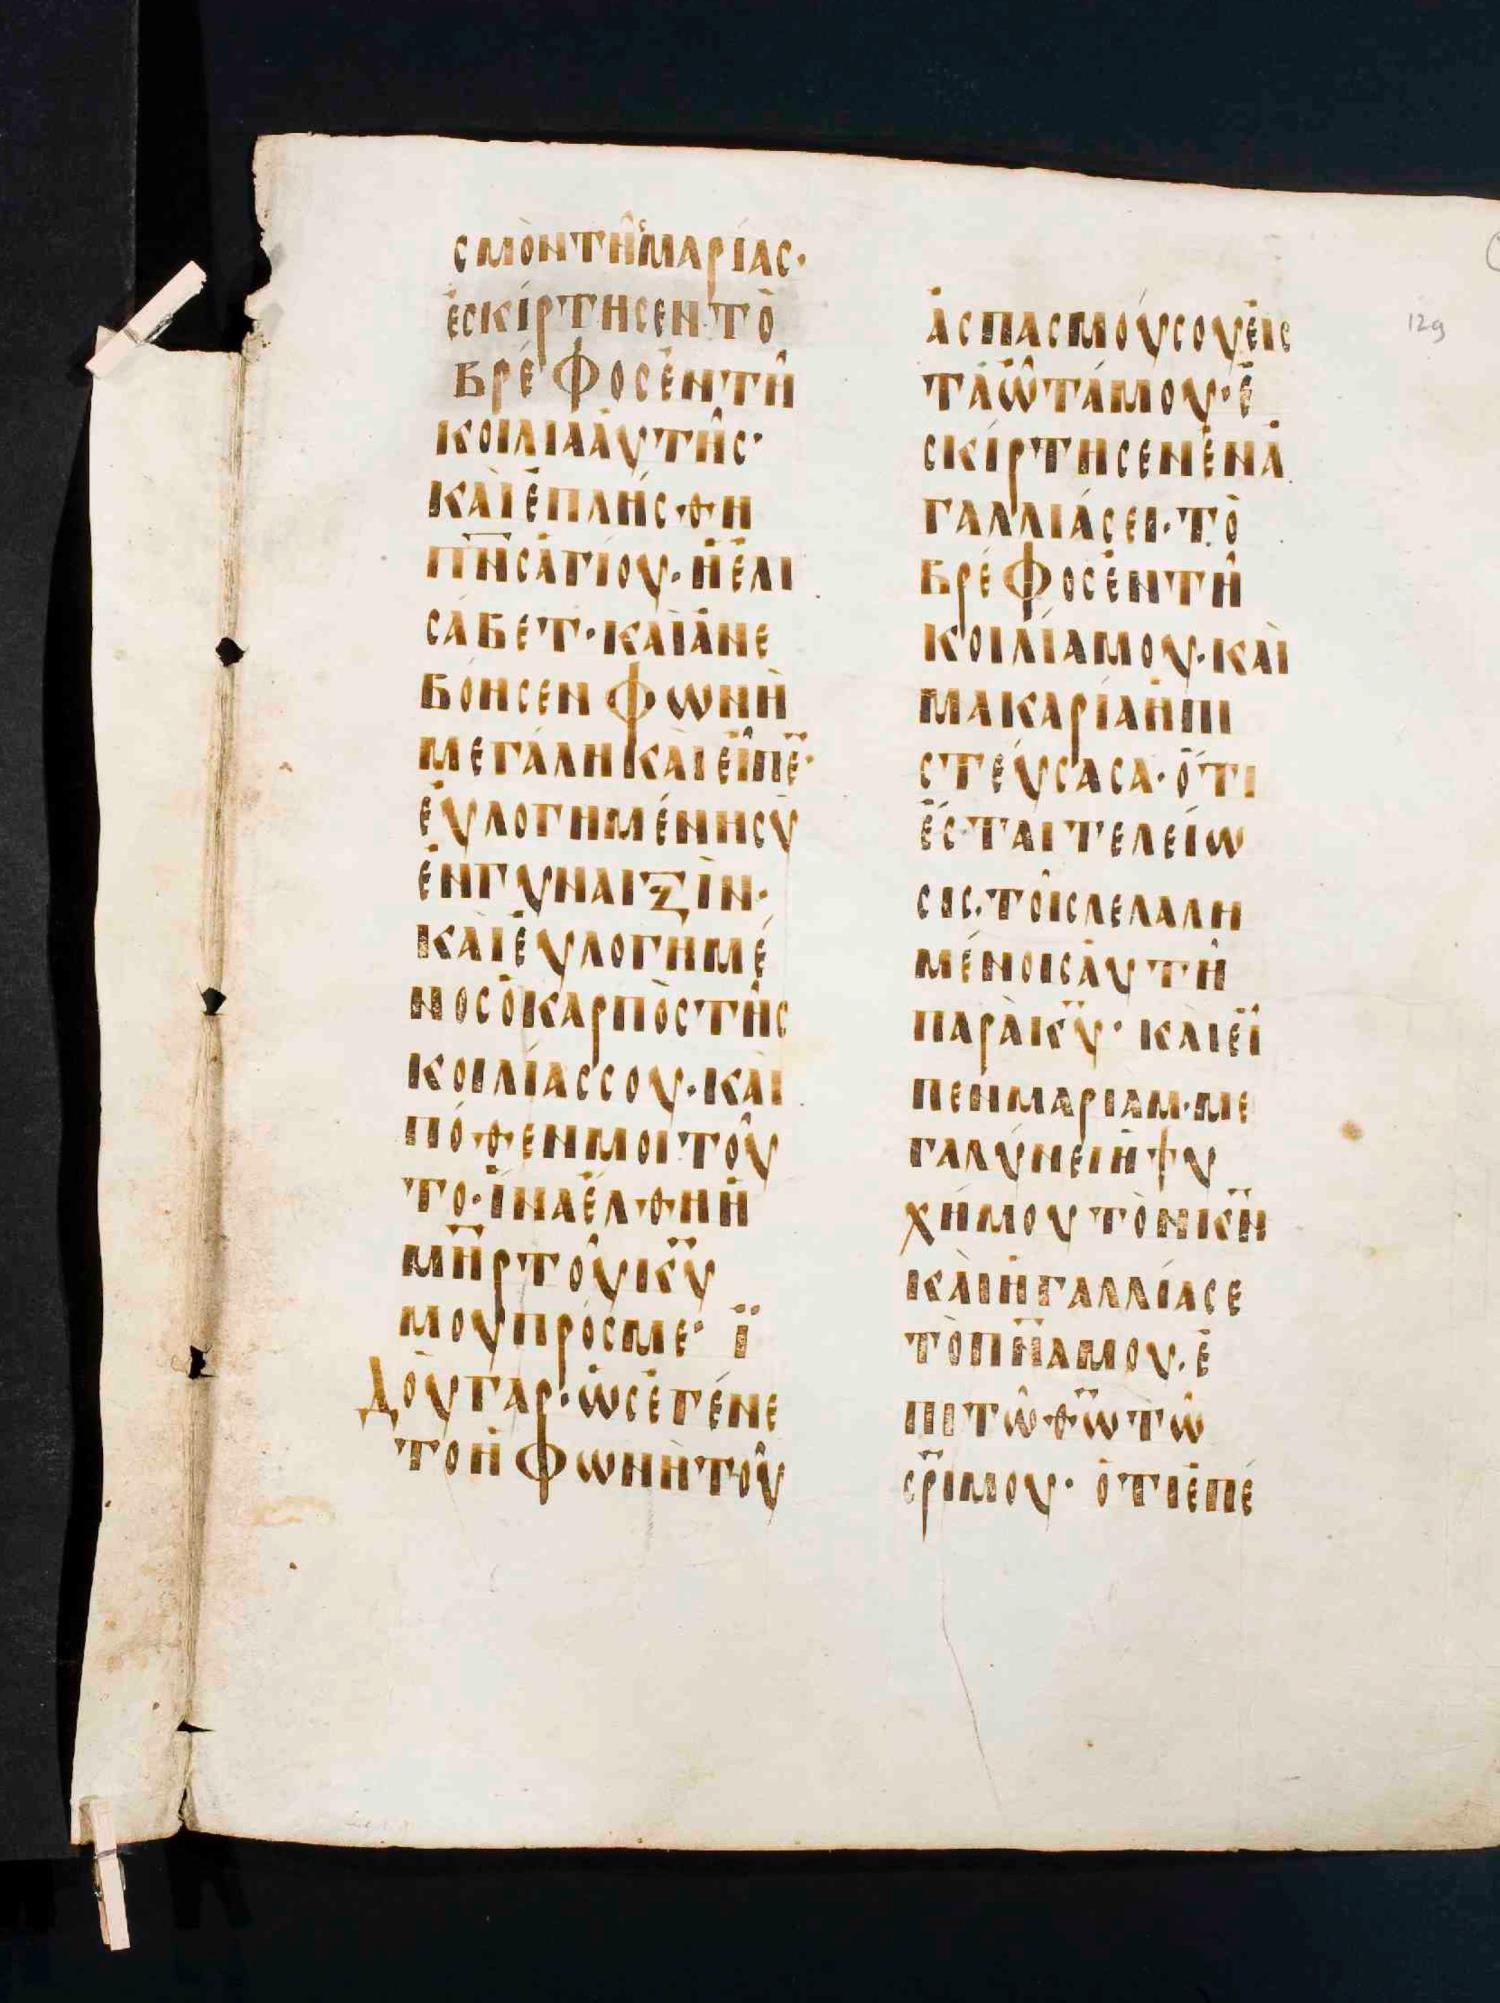 σμὸντῆσμαρίας·
ἐσκίρτησεντὸ
βρέφοσἐντῆ
κοιλίααὐτῆς·
καὶἐπλήσθη
π̅ν̅σἁγίου·ἡἐλι
σάβετ·καὶἀνε
βόησενφωνῆ
μεγάληκαὶεἶπε·
ἐυλογημένησὺ
ἐνγυναιξὶν·
καὶἐυλογημέ
νοσὁκαρπὸςτῆς
κοιλίασσου·καὶ
πόθενμοιτοῦ
το·ἵναἔλθηἡ
μ̅η̅ρτοῦκ̅υ̅
μουπρόσμε· ἰ
δοὺγαρ·ὡσἐγένε
τοἡφωνὴτοῦ
ἀσπασμοῦσουἐις
τὰὦτάμου·ἐ
σκίρτησενἐνἀ
γαλλιάσει·τὸ
βρέφοσἐντῆ
κοιλίαμου·καὶ
μακαρίαἡπι
στεύσασα·ὅτι
ἔσταιτελείω
σις·τοῖσλελαλη
μένοισἀυτῆ
παρὰκ̅υ̅· καὶεἶ
πενμαριαμ·με
γαλύνειἡψυ
χήμουτὸνκ̅ν̅
καὶἠγαλλίασε
τὸπ̅ν̅αμου·ἐ
πιτῶθ̅ω̅τῶ
σ̅ρ̅ιμου· ὁτιἐπέ
129